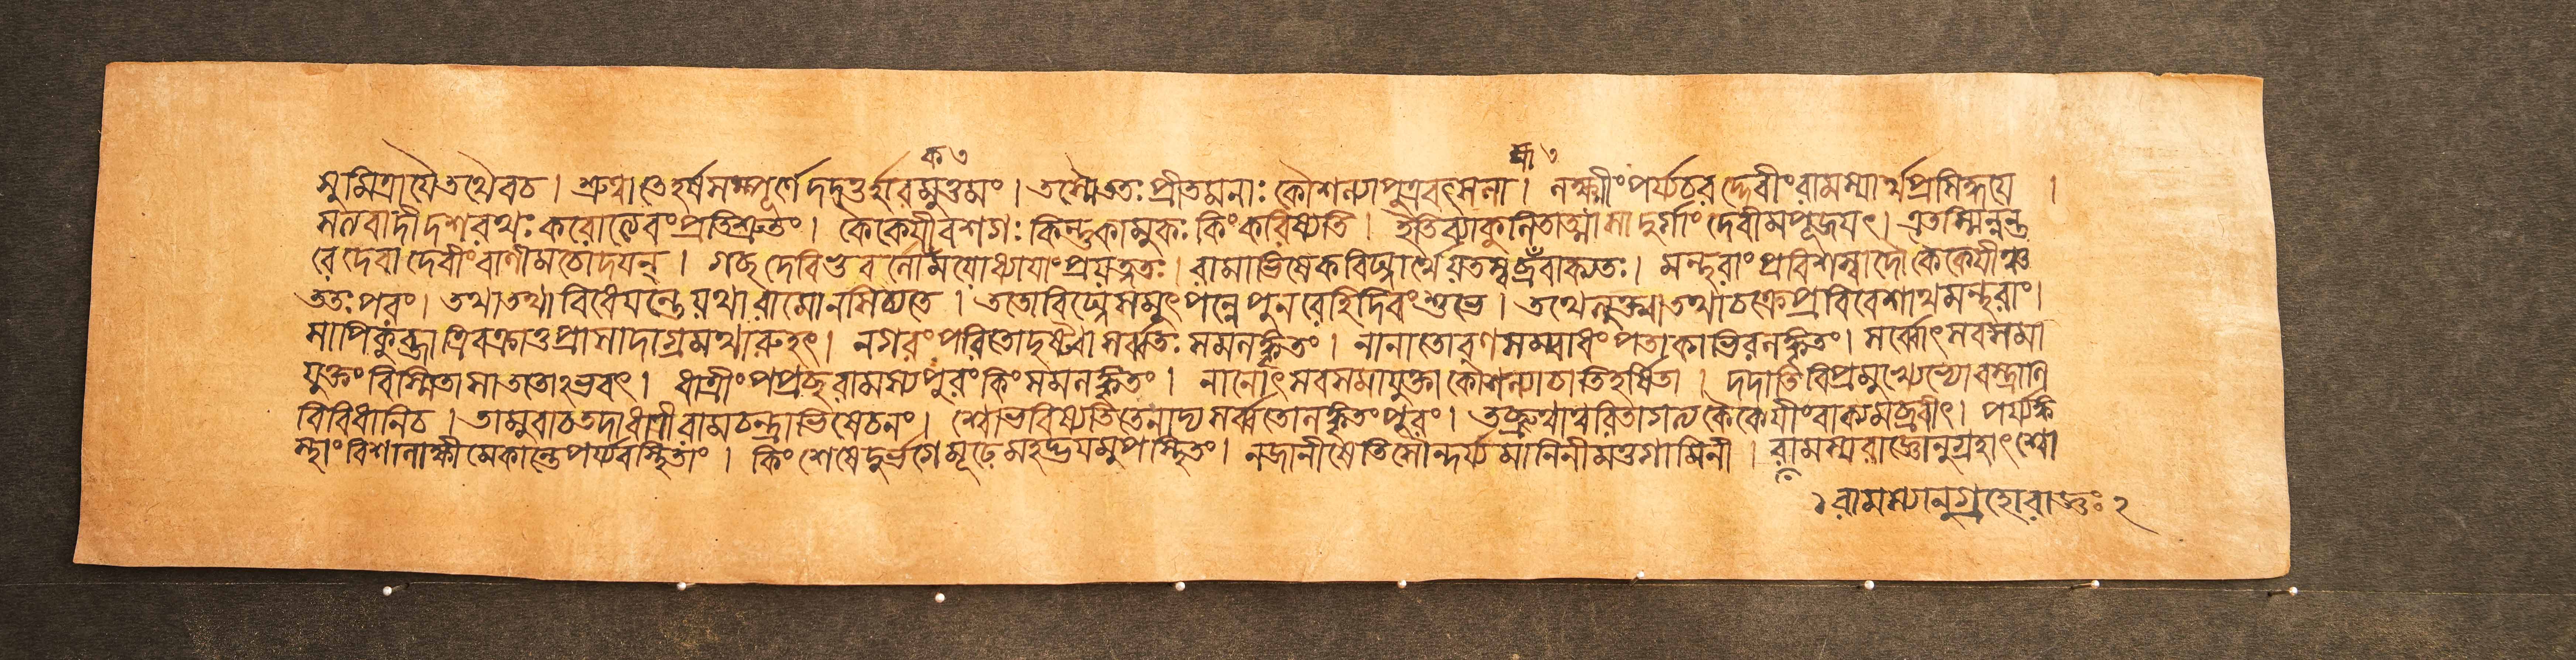 ক ৩
সুমিত্রায়ৈতথৈবচ । শ্রুত্বাতেহর্ষসম্পূর্ণেদদতুর্হারমুত্তমং । তস্মৈততঃপ্রীতমনাঃ কৌশল্যাপুত্রবৎসলা । লক্ষ্মীংপর্য্যচরদ্দেবীংরামস্যার্থপ্রসিদ্ধয়ে ।
সত্যবাদীদশরথঃ করোত্যেবংপ্রতিশ্রুতং । কৈকেয়ীবশগঃ কিন্তুকামুকঃ কিংকরিষ্যতি । ইতিব্যাকুলিতাত্মাসাদুর্গাংদেবীমপূজয়ৎ । এতস্মিন্নন্ত
রেদেবাদেবীংবাণীমচোদয়ন্ । গচ্ছদেবিভুবর্লোকময়োধ্যায়াংপ্রয়ত্নতঃ । রামাভিষেকবিঘ্নার্থেযতস্ববাক্যতঃ । মন্থরাংপ্রবিশস্বাদৌকৈকেয়ীঞ্চ
ততঃপরং । তথাতথাবিধেয়ন্তেয়থারামোনসিচ্যতে । ততোবিঘ্নেসমুৎপন্নেপুনরেহিদিবংশুভে । তথেত্যুক্ত্বাতথাচক্রেপ্রবিবেশাথমন্থরাং ।
সাপিকুব্জাত্রিবক্রাতুপ্রাসাদাগ্রমথারুহৎ । নগরংপরিতোদৃষ্ট্বাসর্ব্বতঃ সমলঙ্কৃতং । নানাতোরণসম্বাধংপতাকাভিরলঙ্কৃতং । সর্ব্বোৎসবসমা
যুক্তংবিস্মিতাসাততোঽভবৎ । ধাত্রীংপপ্রচ্ছরামস্যপুরংকিংসমলঙ্কৃতং । নানোৎসবসমাযুক্তাকৌশল্যাচাতিহর্ষিতা । দদাতিবিপ্রমুখ্যেভ্যোবস্ত্রাণি
বিবিধানিচ । তামুবাচতদাধাত্রীরামচন্দ্রাভিষেচনং । শ্বোভবিষ্যতিতেনাদ্যসর্ব্বতোলঙ্কৃতংপুরং । তচ্ছ্রুত্বাত্বরিতাগত্যকৈকেয়ীংবাক্যমব্রবীৎ । পর্য্যঙ্কি
স্থাংবিশালাক্ষীমেকান্তেপর্য্যবস্থিতাং । কিংশেষেদুর্ভগেমূঢ়েমহদ্ভয়মুপস্থিতং । নজানীষেতিসৌন্দর্য্যমানিনীমত্তগামিনী । রামস্যরাজ্ঞোনুগ্রহাৎশ্বো
১রামস্যানুগ্রহোরাজ্ঞঃ ২